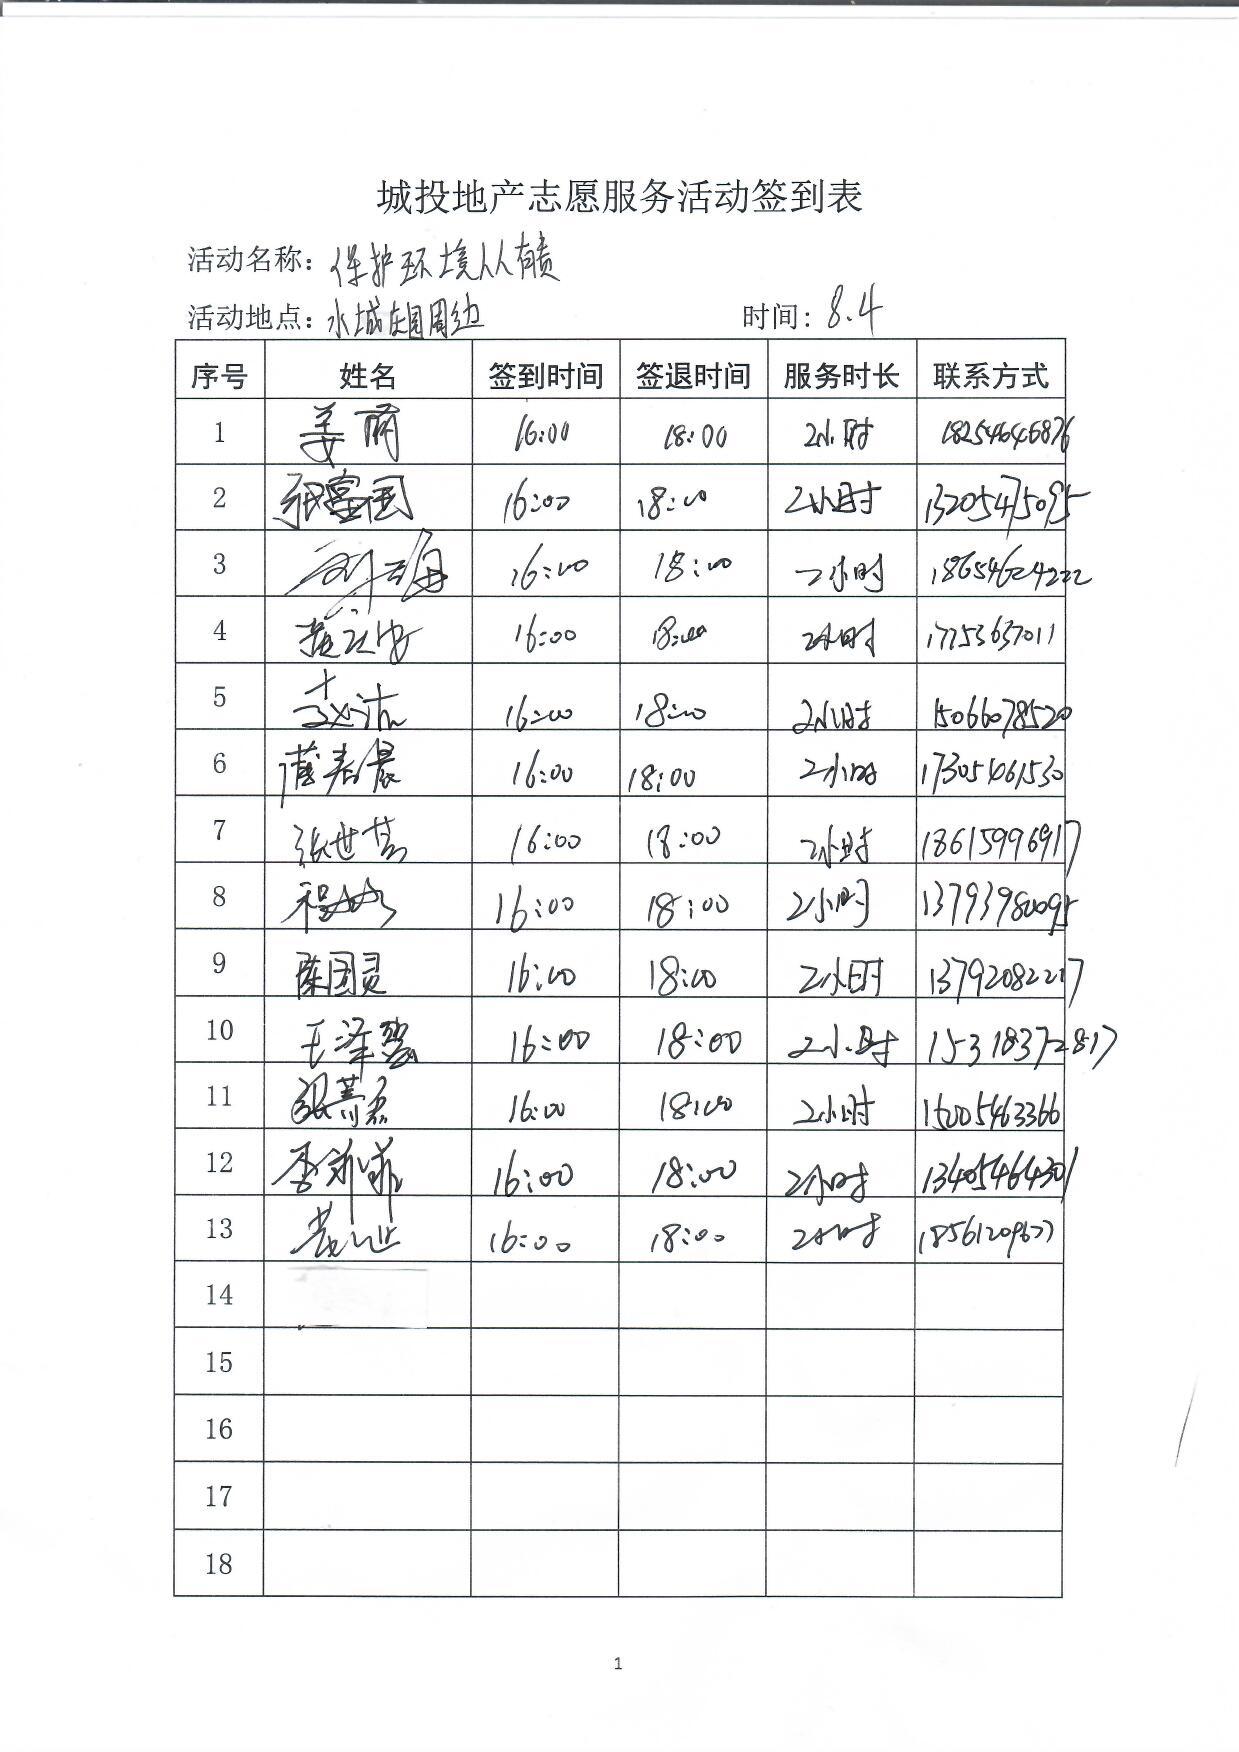 城投地产志愿服务活动签到表
活动名称：保护环境人人有责
活动地点：水城庄园周边 时间：8.4
序号 姓名 签到时间 签退时间 服务时长 联系方式
1 姜丽 16:00 18:00 2小时 18254646876
2 16:00 18:00 2小时 13205475095
3 16:00 18:00 2小时 18654624222
4 16:00 18:00 2小时 17753637011
5 16:00 18:00 2小时 15066078520
6 16:00 18:00 2小时 17305461530
7 张世营 16:00 18:00 2小时 18615996917
8 16:00 18:00 2小时 13793980095
9 陈国灵 16:00 18:00 2小时 13792082217
10 16:00 18:00 2小时 15318372817
11 16:00 18:00 2小时 15005463366
12 16:00 18:00 2小时 13405464301
13 16:00 18:00 2小时
14
15
16
17
18
1